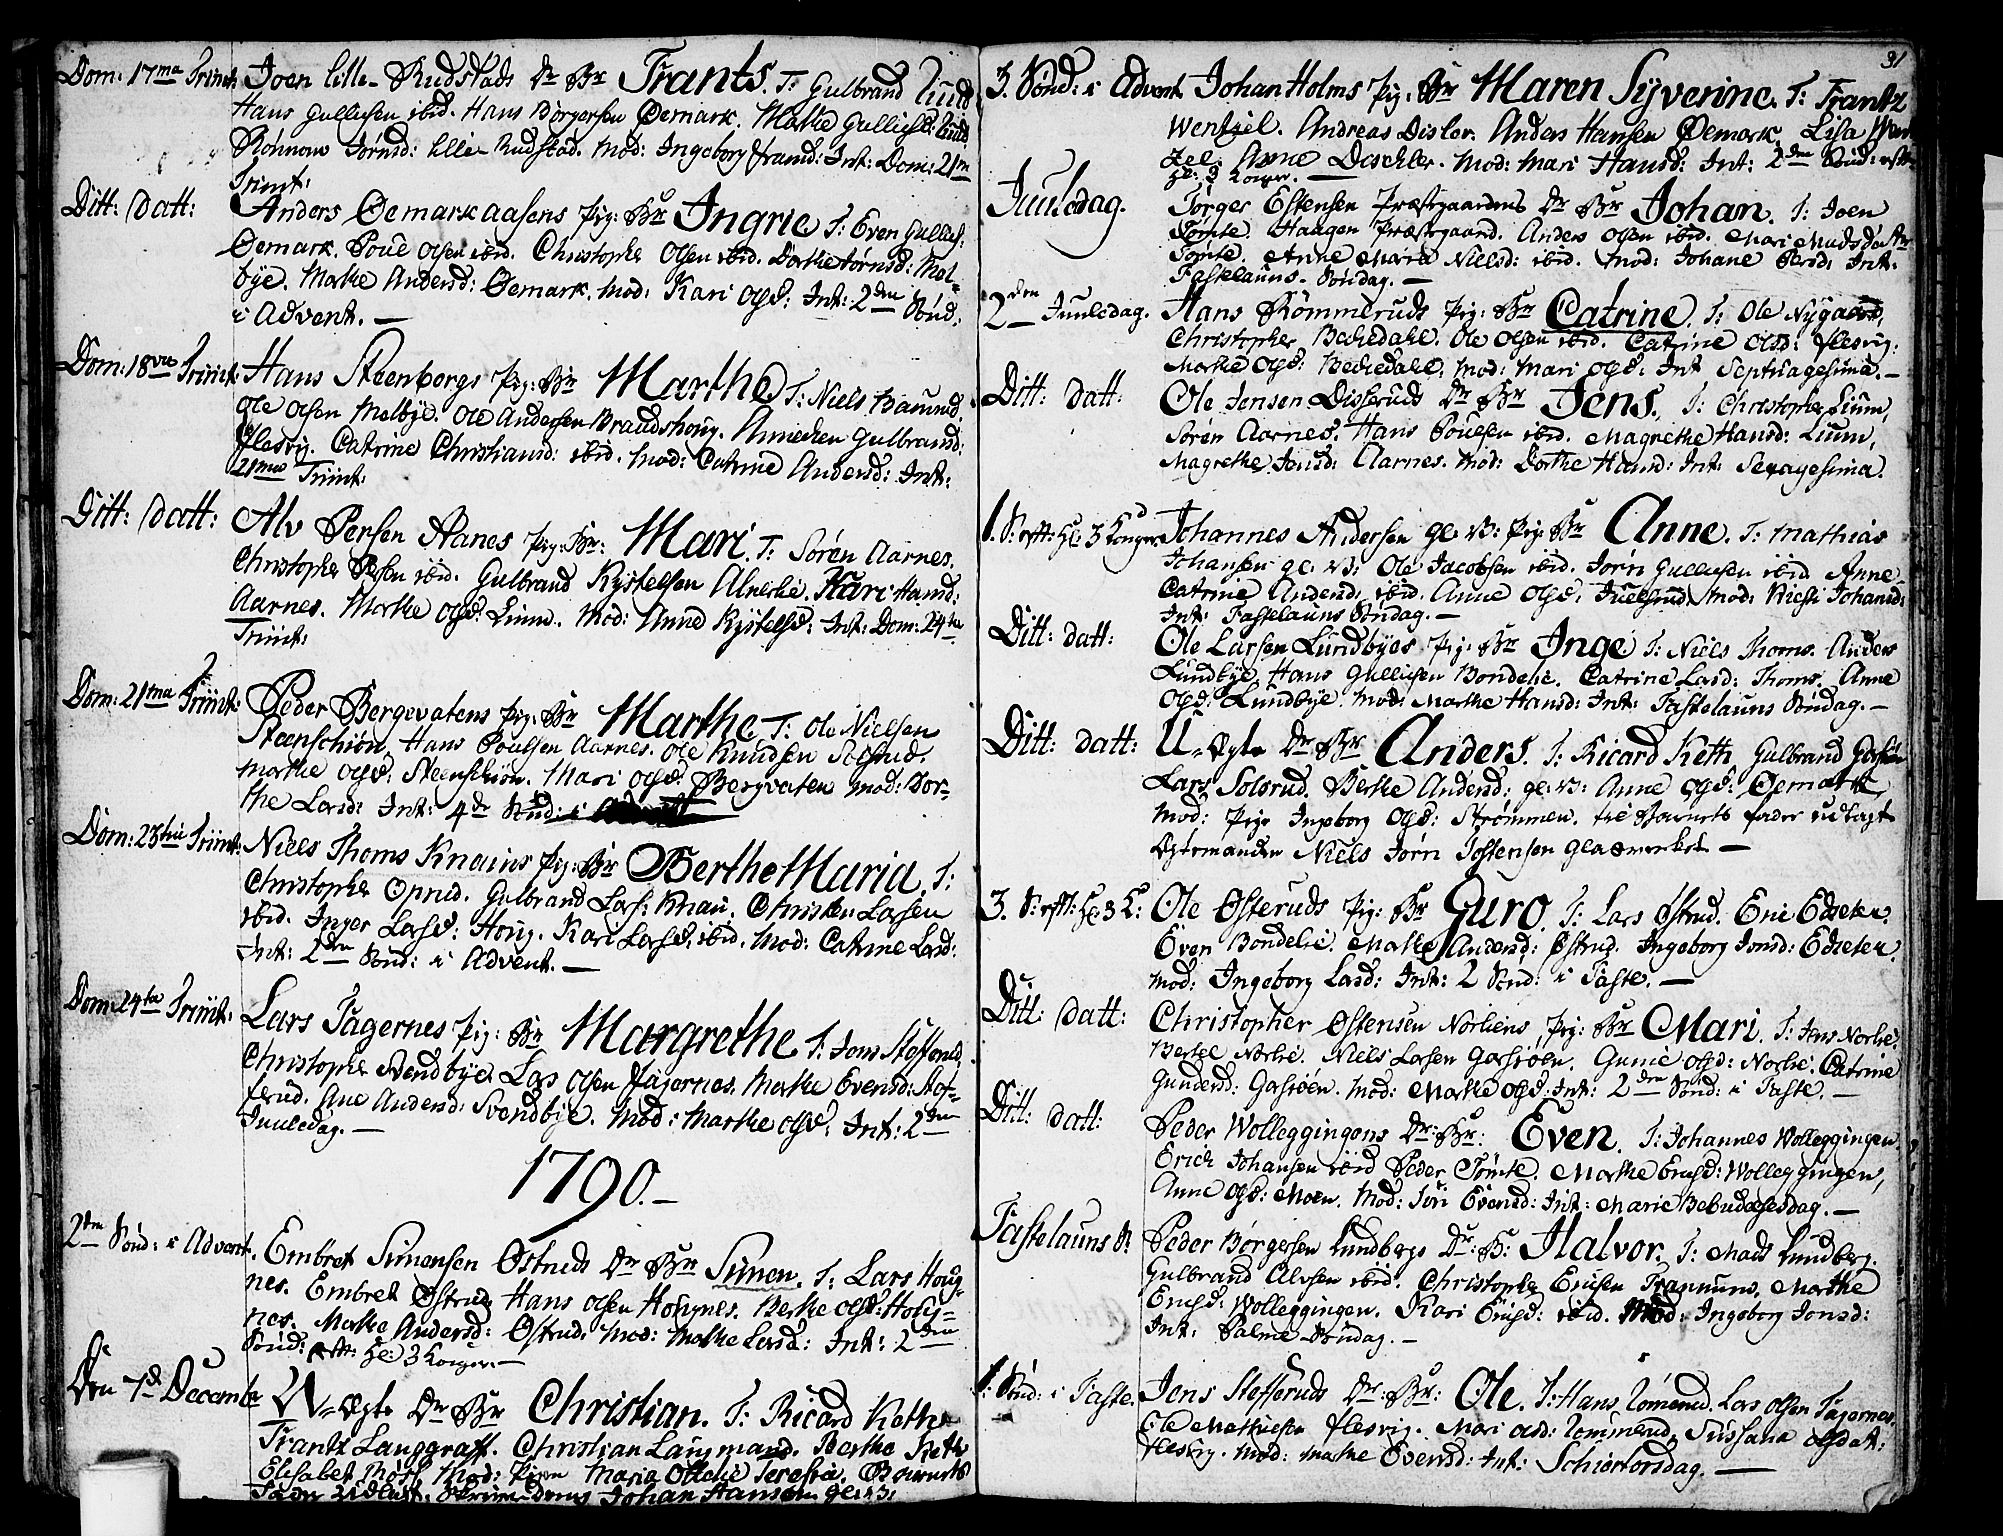 Dom: 17ma Triinit: Joen lille Rudstads Dr Br Frants. T: Gulbrand Liund
Hans Gulliksen ibid. Hans Børgersen Øemark. Marthe Gulliksd: Liund
Jørnsd: lille Rudstad. Mod: Ingeborg Framd: Int: Dom: 21ma
Triinit:
Ditt: Datt: Anders Øemark aasens Pig: Br Ingrie T: Even Gullics:
Øemark. Poul Olsen ibid. Christopher Olsen ibid. Dorthe Jørnsd: Mel-
bye. Marthe Andersd: Øemark. Mod: Kari Olsd: Int: 2den Sønd:
i Advent. —
Dom: 18va Triinit: Hans Steenborgs Pig: Br Marthe T: Niels Baunud
Ole Olsen Melbye. Ole Andersen Braudshoug. Annichen Gulbrandsd:
Flesvig. Catrine Christiansd: ibid. Mod: Catrine Andersd: Int:
21ma Triinit:
Ditt: Datt: Alv Persen Aanes Pig: Br: Mari. T: Sørén Aarnes.
Christopher Persen ibid. Gulbrand Kystelsen Alneshie. Kari Hansd:
Aarnes. Marthe Olsd: Liund. Mod: Anne Kystelsd: Int: Dom: 24ta
Triinit:
Dom: 21ma Triinit: Peder Bergevatens Pig: Br Marthe T: Ole Nielsen
Steenschiøn. Hans Poulsen Aarnes. Ole Knudsen Solsrud.
Marthe Olsd: Steenschiøn. Mari Olsd: Bergvaten Mod: Dor-
the Larsd: Int: 4de Sønd: i Advent
Dom: 23tia Triinit: Niels Thoms Knaius Pig: Br Berthe Maria. T:
Christopher Oprud. Gulbrand Lars: Knau. Christen Larsen
ibid. Inger Larsd: Houg. Kari Larsd: ibid. Mod: Catrine Larsd:
Int: 2den Sønd: i Advent. —
Dom: 24ta Triinit: Lars Fagernes Pig: Br Margrethe T: Jens Stefferud
Christopher Svendbye. Lars Olsen Fagernes. Marthe Evensd: Stef-
ferud. Ane Andersd: Svendbye. Mod: Marthe Olsd: Int: 2den
Juuledag. —
1790.—
2den Sønd: i Advent. Embret Simensen Østruds Dr Br Simen. T: Lars Houg-
nes. Embret Østrud. Hans Olsen Hougnes. Berthe Olsd: Houg-
nes. Marthe Andersd: Østrud. Mod: Marthe Larsd: Int: 2den
Sønd: eftt: Hel: 3 Konger. —
Den 7de Decembr U-Ægte Dr Br Christian. T: Ricard Keth
Frantz Langgraff. Christian Langmand. Berthe Keth
Elisabet Mod: Pigen Maria Ottelie Barnets
Fader Johan Hansen gl: V:
31
3. Sønd: i Advent Johan Holms Pig: Br Maren Syverine. T: Frantz
Wentzel. Andreas Disler. Anders Hansen Øemark. Lisa Went
zel. Anne Deschler. Mod: Mari Hansd: Int: 2den Sønd: eftt
Hel: 3 Konger. —
Juuledag. Tørger Estensen Præstgaardens Dr Br Johan. T: Joen
Tømte. Haagen Præstgaard. Anders Olsen ibid. Mari Madsdatter
Tømte. Anne Maria Nielsd: ibid. Mod: Johane Persd: Int:
Fastelauns-Søndag. —
2den Juuledag. Hans Rømmeruds Pig: Br Catrine. T: Ole Nygaard,
Christopher Bechedahl. Ole Olsen ibid. Catrine Olsd: Flesvig.
Marthe Olsd: Bechedahl. Mod: Mari Olsd: Int Septuagesima. —
Ditt: Datt: Ole Jensen Disseruds Dr Br Jens. T: Christopher Liium,
Sørén Aarnes. Hans Poulsen ibid. Magrethe Hansd: Liium,
Magrethe Jensd: Aarnes. Mod: Dorthe Hansd: Int: Sexagesima.
1. S: eftt: He: 3 Konger Johannes Andersen gl: V: Pig: Br Anne. T: Mathias
Johansen gl: V: Ole Jacobsen ibid. Jørn Gulliksen ibid Anne
Catrine Andersd: ibid. Anne Olsd: Juelsrud. Mod: Johansd:
Int: Fastelauns Søndag. —
Ditt: Datt: Ole Larsen Lundbyes Pig: Br Inge T: Niels Thoms. Anders
Lundbye. Hans Gulliksen Bondelie. Catrine Larsd: Thoms. Anne
Olsd: Lundbye. Mod: Marthe Hansd: Int: Fastelauns Søndag. —
Ditt: Datt: U-Ægte Dr Br Anders. T: Ricard Keth Gulbrand Garsiøn
Lars Solsrud. Berthe Andersd: gl: V: Anne Olsd: Øemark,
Mod: Pige Ingeborg Olsd: Strømmen. til Barnets fader udlagt
Ægtemanden Niels Jørn Jostensen Glasverket —
3. S: eftt: He: 3 K: Ole Østeruds Pig: Br Guro T: Lars Østrud. Erie Edseter.
Even Bondelie. Marthe Andersd: Østrud. Ingeborg Jonsd: Edseter.
Mod: Ingeborg Larsd: Int: 2 Sønd: i Faste. —
Ditt: Datt: Christopher Østensen Norliens Pig: Br Mari. T: Jens Norlie.
Bertel Norlie. Niels Larsen Garsiøen. Gunne Olsd: Norlie. Catrine
Gundersd: Garsiøen. Mod: Marthe Olsd: Int: 2den Sønd: i Faste. —
Ditt: Datt: Peder Wolleggingens Dr: Br: Even. T: Johannes Wolleggingen
Erich Johansen ibid Peder Tømte. Marthe Ericsd: Wolleggingen,
Anne Olsd: Moen. Mod: Siri Evensd: Int: Marie Bebudelsesdag. —
Fastelauns S: Peder Børgersen Lundbergs Dr: B: Halvor. T: Mads Lundberg.
Gulbrand Alvsen ibid. Christopher Ericsen Trannuns. Marthe
Ericsd: Wolleggingen. Kari Ericsd: ibid. Mod: Ingeborg Jonsd:
Int: Palme-Søndag. —
1: Sønd: i Faste. Jens Stefferuds Dr: Br: Ole. T: Hans Rømerud. Lars Olsen Fagernes.
Ole Mathiesen Flesvig. Mari Olsd: Rømmerud. Sussana Olsdat:
Flesvig. Mod: Marthe Evensd: Int: Schiertorsdag. —